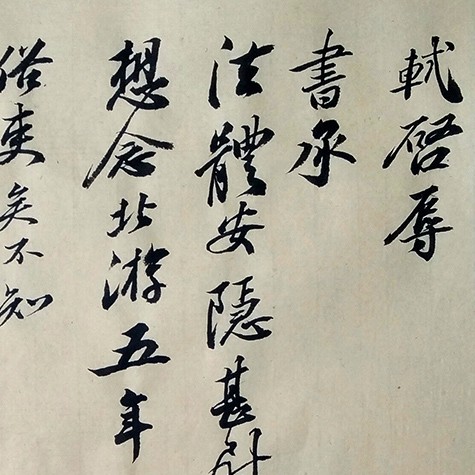 軾啓辱
書承
法體安隱甚尉
想念北游五年
俗吏矣不知